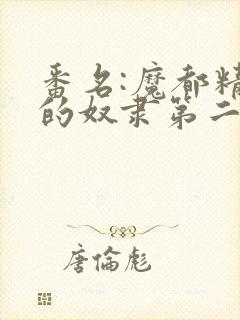 番名:魔都精
的奴隶第二
唐倫彪